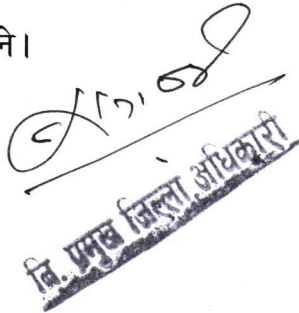 ने।
नि. प्रमुख जिल्ला अधिकारी